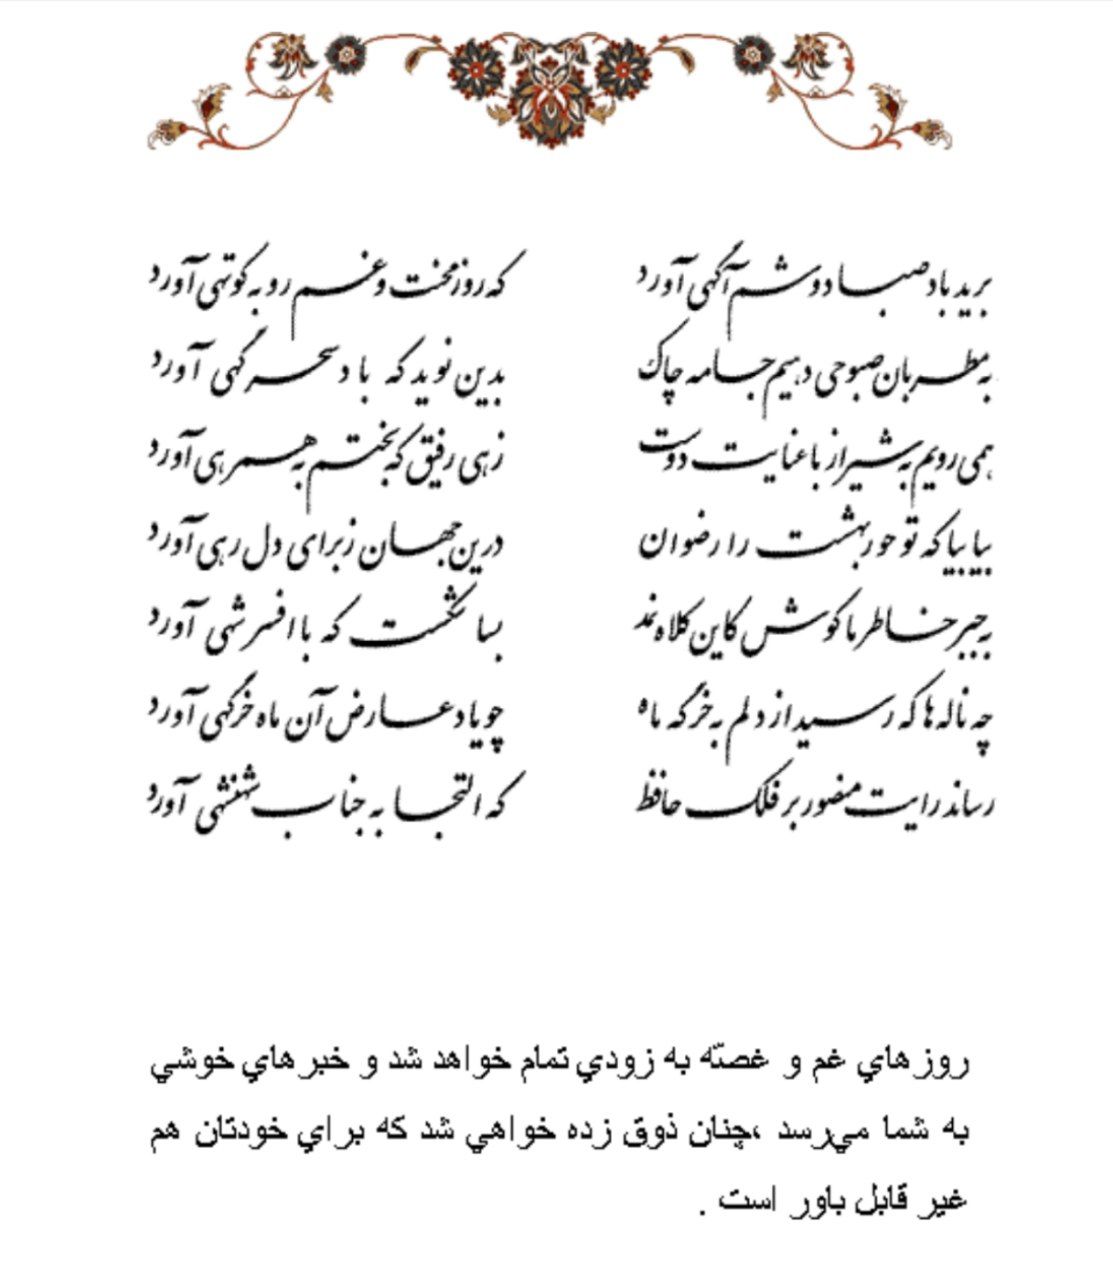 برید باد صبا دوشم آگهی آورد که روز محنت و غم رو به کوتهی آورد
به مطربان صبوحی دهیم جامه چاک بدین نوید که باد سحرگهی آورد
همی رویم به شیراز با عنایت دوست زهی رفیق که بختم به همرهی آورد
بیا بیا که تو حور بهشت را رضوان درین جهان ز برای دل رهی آورد
به جبر خاطر ما کوش کاین کلاه نمد بسا شکست که با افسر شهی آورد
چه ناله‌ها که رسید از دلم به خرگه ماه چو یاد عارض آن ماه خرگهی آورد
رساند رایت منصور بر فلک حافظ که التجا به جناب شهنشهی آورد
روزهاي غم و غصّه به زودي تمام خواهد شد و خبرهاي خوشي
به شما مي‌رسد ،چنان ذوق زده خواهي شد كه براي خودتان هم
غير قابل باور است .